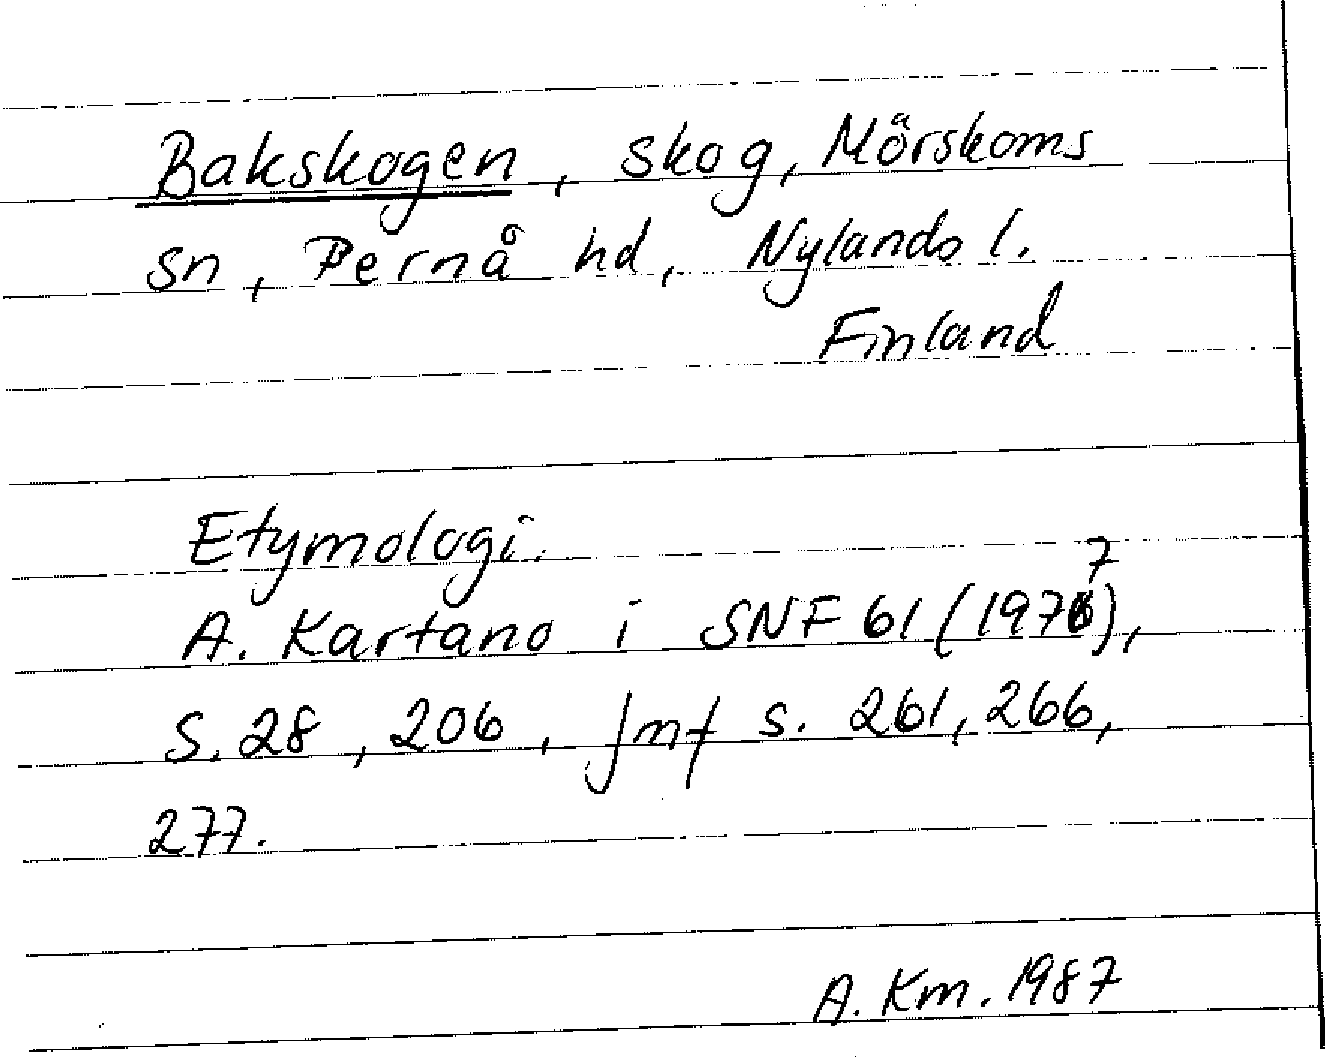 Bakskogen, skog, Mörskoms
sn, Pernå hd, Nylands l.
Finland
Etymologi.
A. Kartano i SNF 61 (1977),
s. 28, 206, jmf s. 261, 266,
277.
A. Km. 1987